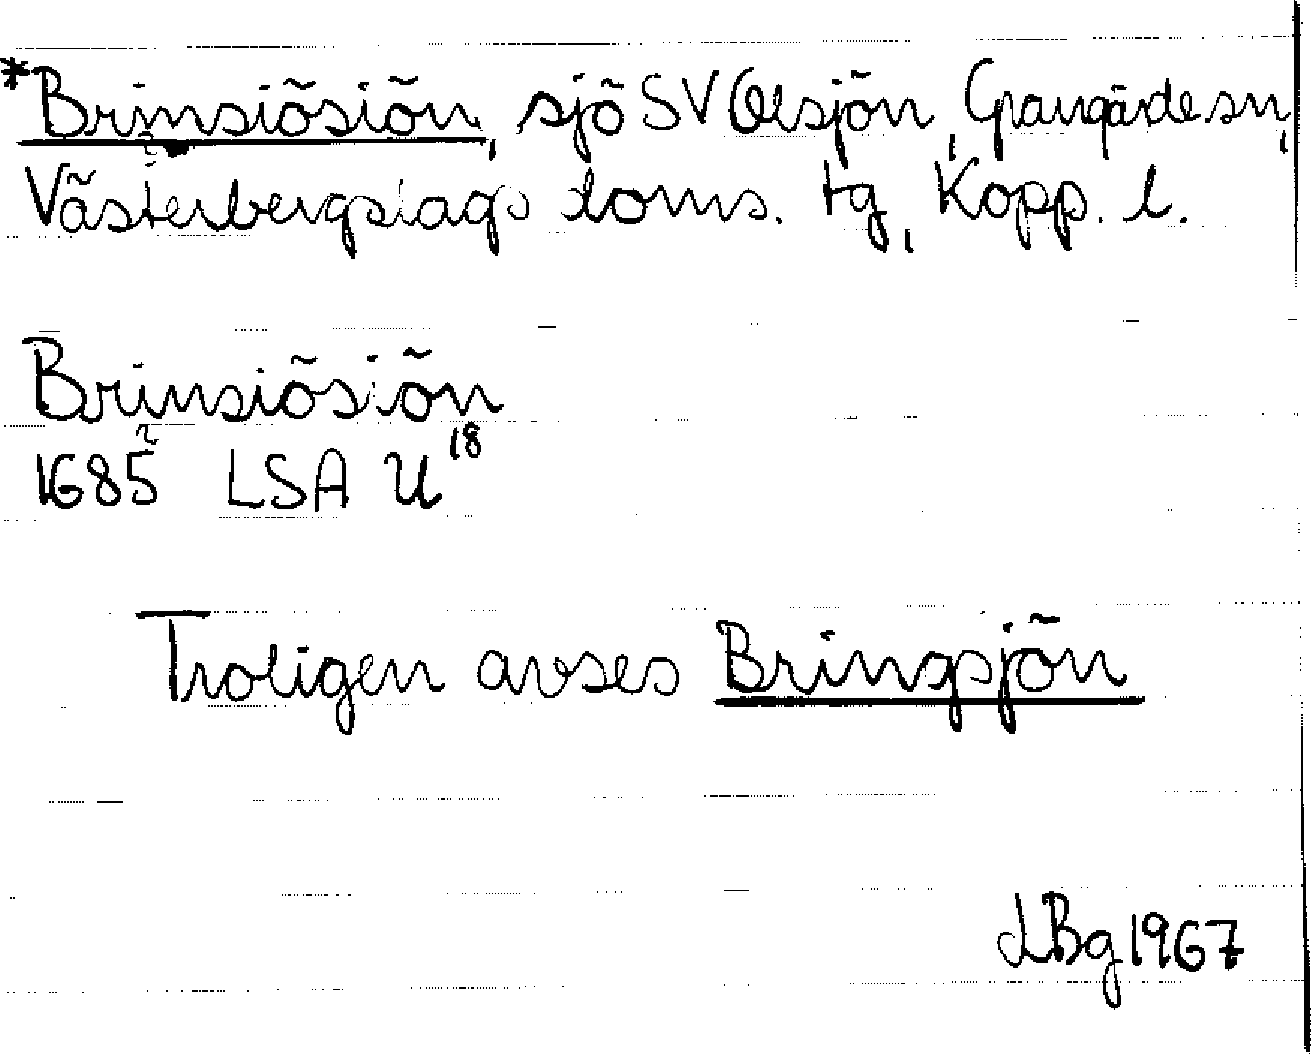 *Brinsiösiön, sjö SV Olsjön, Grangärde sn,
Västerbergslags doms. tg, Kopp. l.
Brinsiösiön
1685 LSA U18
Troligen avses Bringsjön
LBg 1967